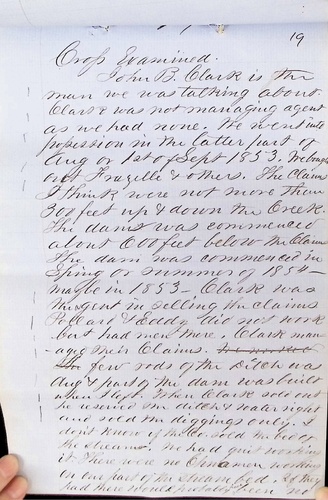 19
Cross Examined.
John B. Clark is the
man we was talking about.
Clark was not managing agent
as we had none. We went into
possession in the latter part of
Aug or 1st of Sept 1853. We bought
out Frazelle & others. The Claims
I think were not more than
300 feet up & down the Creek.
The dam was commenced
about 600 feet below the Claims
The dam was commenced in
Spring or summer of 1854 -
maybe in 1853 - Clark was
the agent in selling the claims
Pollard & Eddy did not work
but had men there. Clark man-
aged their Claims.
few rods of the Ditch was
dug & part of the dam was built
when I left. When Clark sold out
he reserved the ditch & water right
and sold the diggings only. I
don't know if the Co. sold the bed of
the stream. We had quit working
it. There were no Chinamen working
on our part of the Stream bed. If they
had there would have been